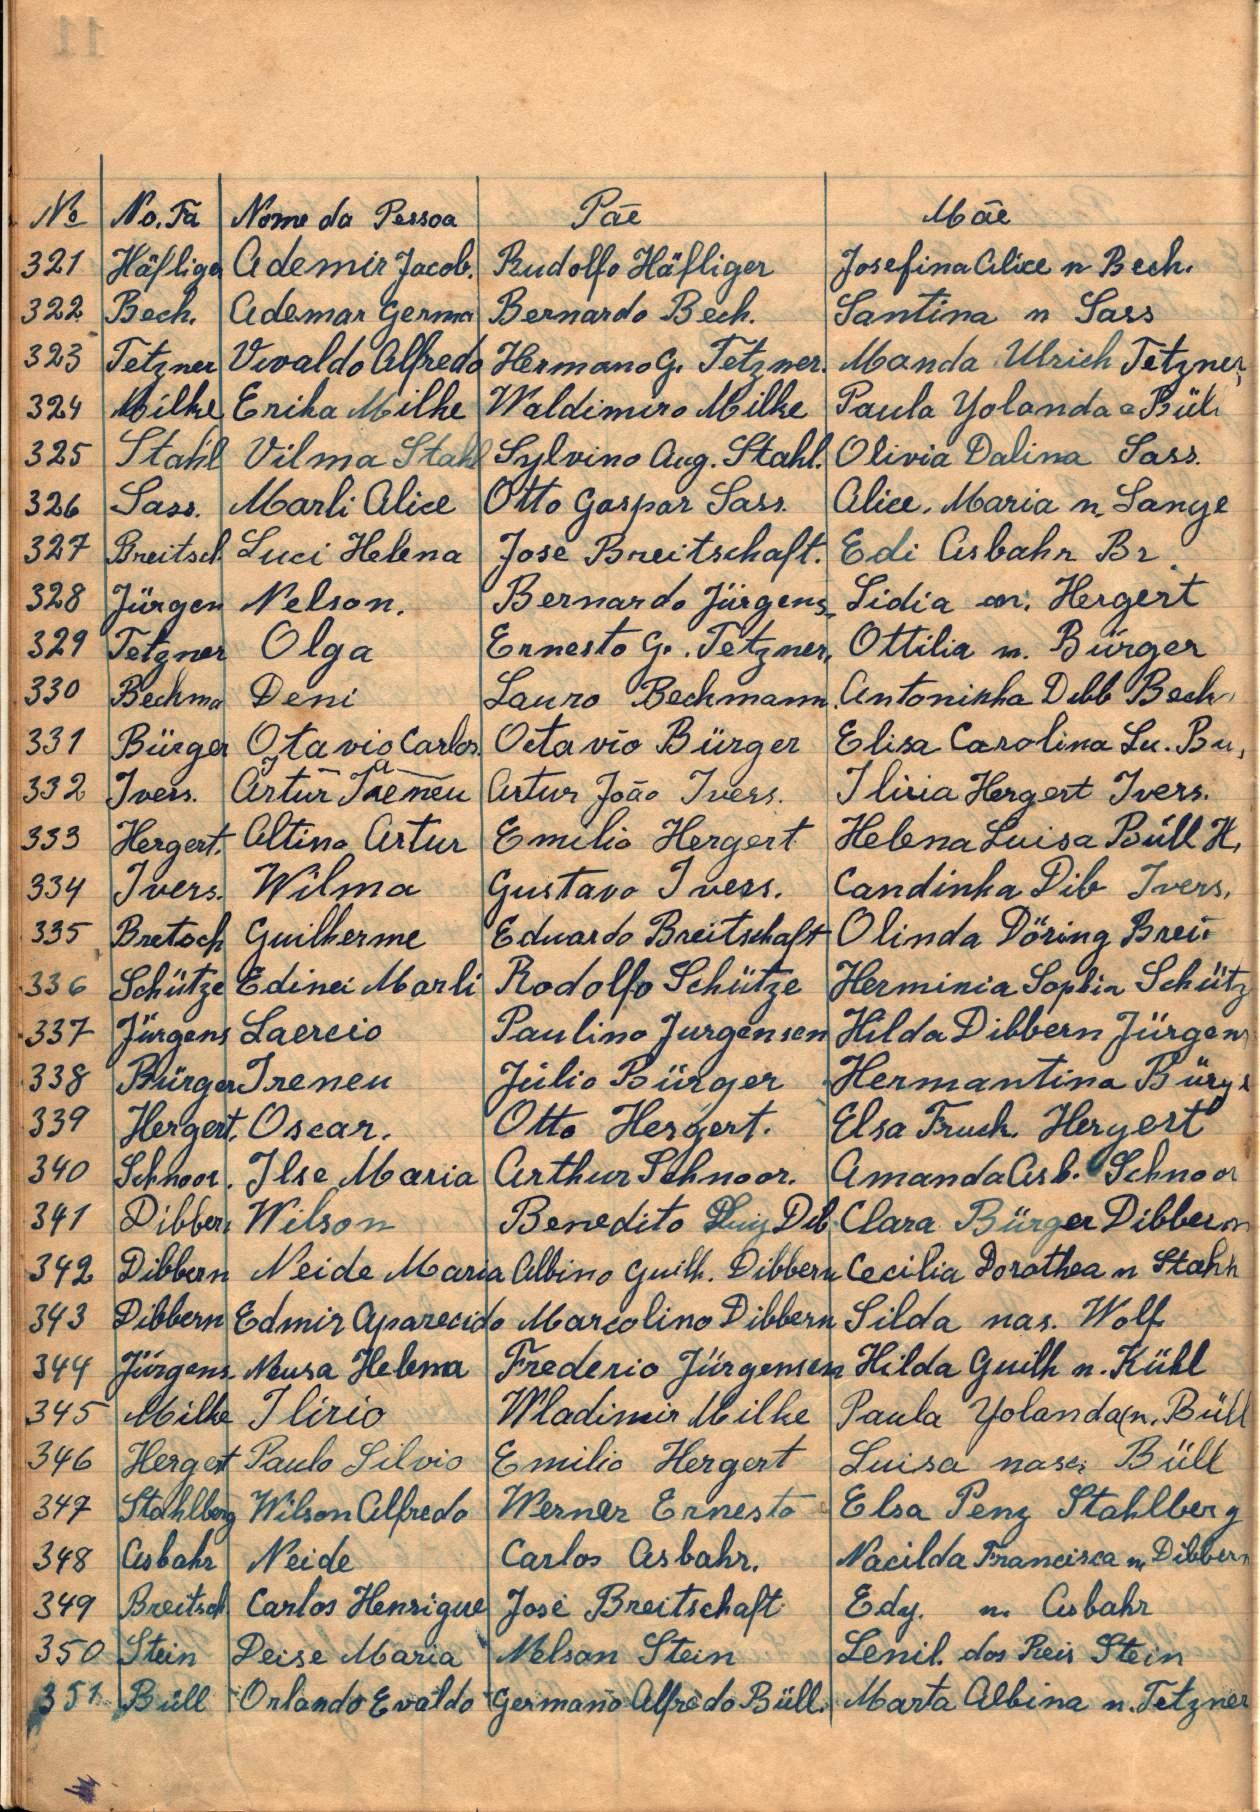 11
No No. Fa Nome da Pessoa Pãe Mãe
321 Häflige Ademir Jacob. Rudolfo Häfliger Josefina Alice n Bech.
322 Bech. Ademar Germa Bernardo Bech. Santina n Sass
323 Tetzner Vivaldo Alfredo Hermano G. Tetzner. Manda Ulrich Tetzner,
324 Milke Erika Milke Waldimiro Milke Paula Yolanda Büll
325 Stahl Vilma Stahl Sylvino Aug. Stahl. Olivia Dalina Sass.
326 Sass. Marli Alice Otto Gaspar Sass. Alice. Maria n. Lange
327 Breitsch. Luci Helena Jose Breitschaft. Edi Asbahr Br.
328 Jürgen Nelson. Bernardo Jürgens Lidia n. Hergert
329 Tetzner Olga Ernesto G. Tetzner. Ottilia n. Bürger
330 Bechma Deni Lauro Bechmann. Antoninha Dibb Bech
331 Bürger Otavio Carlos. Octavio Bürger Elisa Carolina Lu. Bu,
332 Ivers. Artur Artur João Ivers. Iliria Hergert Ivers.
333 Hergert. Altino Artur Emilio Hergert Helena Luisa Büll H.
334 Ivers. Wilma Gustavo Ivers. Candinha Dib Ivers.
335 Bretsch Guilherme Eduardo Breitschaft Olinda Döring Brei
336 Schütze Edinei Marli Rodolfo Schütze Herminia Sophia Schütz
337 Jürgens Laercio Paulino Jurgensen Hilda Dibbern Jürgens
338 Bürger Ireneu Júlio Bürger Hermantina Bürge
339 Hergert. Oscar. Otto Hergert. Elsa Fruch. Hergert
340 Schnoor. Ilse Maria Arthur Schnoor. Amanda Asb. Schnoor
341 Dibbern Wilson Benedito Luiz Dib Clara Bürger Dibbern
342 Dibbern Neide Maria Albino Guilh. Dibbern Cecilia Dorothea n Stahl
343 Dibbern Edmir Aparecido Marcolino Dibbern Silda nas. Wolf
344 Jürgens. Neusa Helena Frederio Jürgensen Hilda Guilh n. Kühl
345 Milke Ilirio Wladimir Milke Paula Yolanda n. Büll
346 Hergert Paulo Silvio Emilio Hergert Luisa nasc. Büll
347 Stahlberg Wilson Alfredo Werner Ernesto Elsa Penz Stahlberg
348 Asbahr Neide Carlos Asbahr. Nacilda Francisca n. Dibbern
349 Breitsch Carlos Henrique José Breitschaft Edy. n. Asbahr
350 Stein Deise Maria Nelson Stein Lenil. dos Reis Stein
351 Büll Orlando Evaldo Germano Alfredo Büll. Marta Albina n. Tetzner